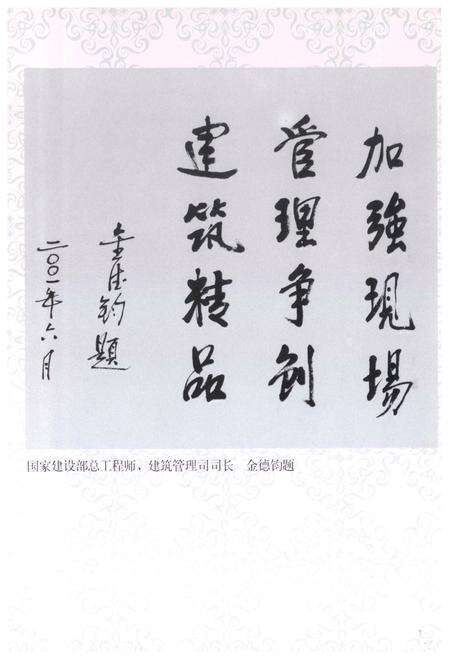 加強現場
管理争创
建筑精品
金德钧题
二〇〇一年六月
国家建设部总工程师、建筑管理司司长 金德钧题
1